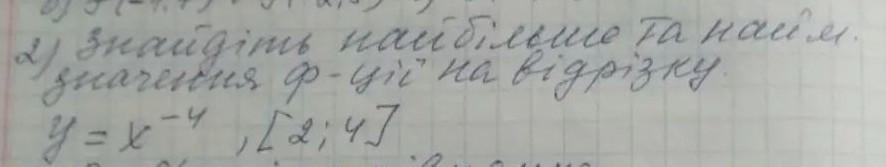 2) Знайдіть найбільше та найм.
значення ф-ції на відрізку.
y = x⁻⁴ , [2; 4]